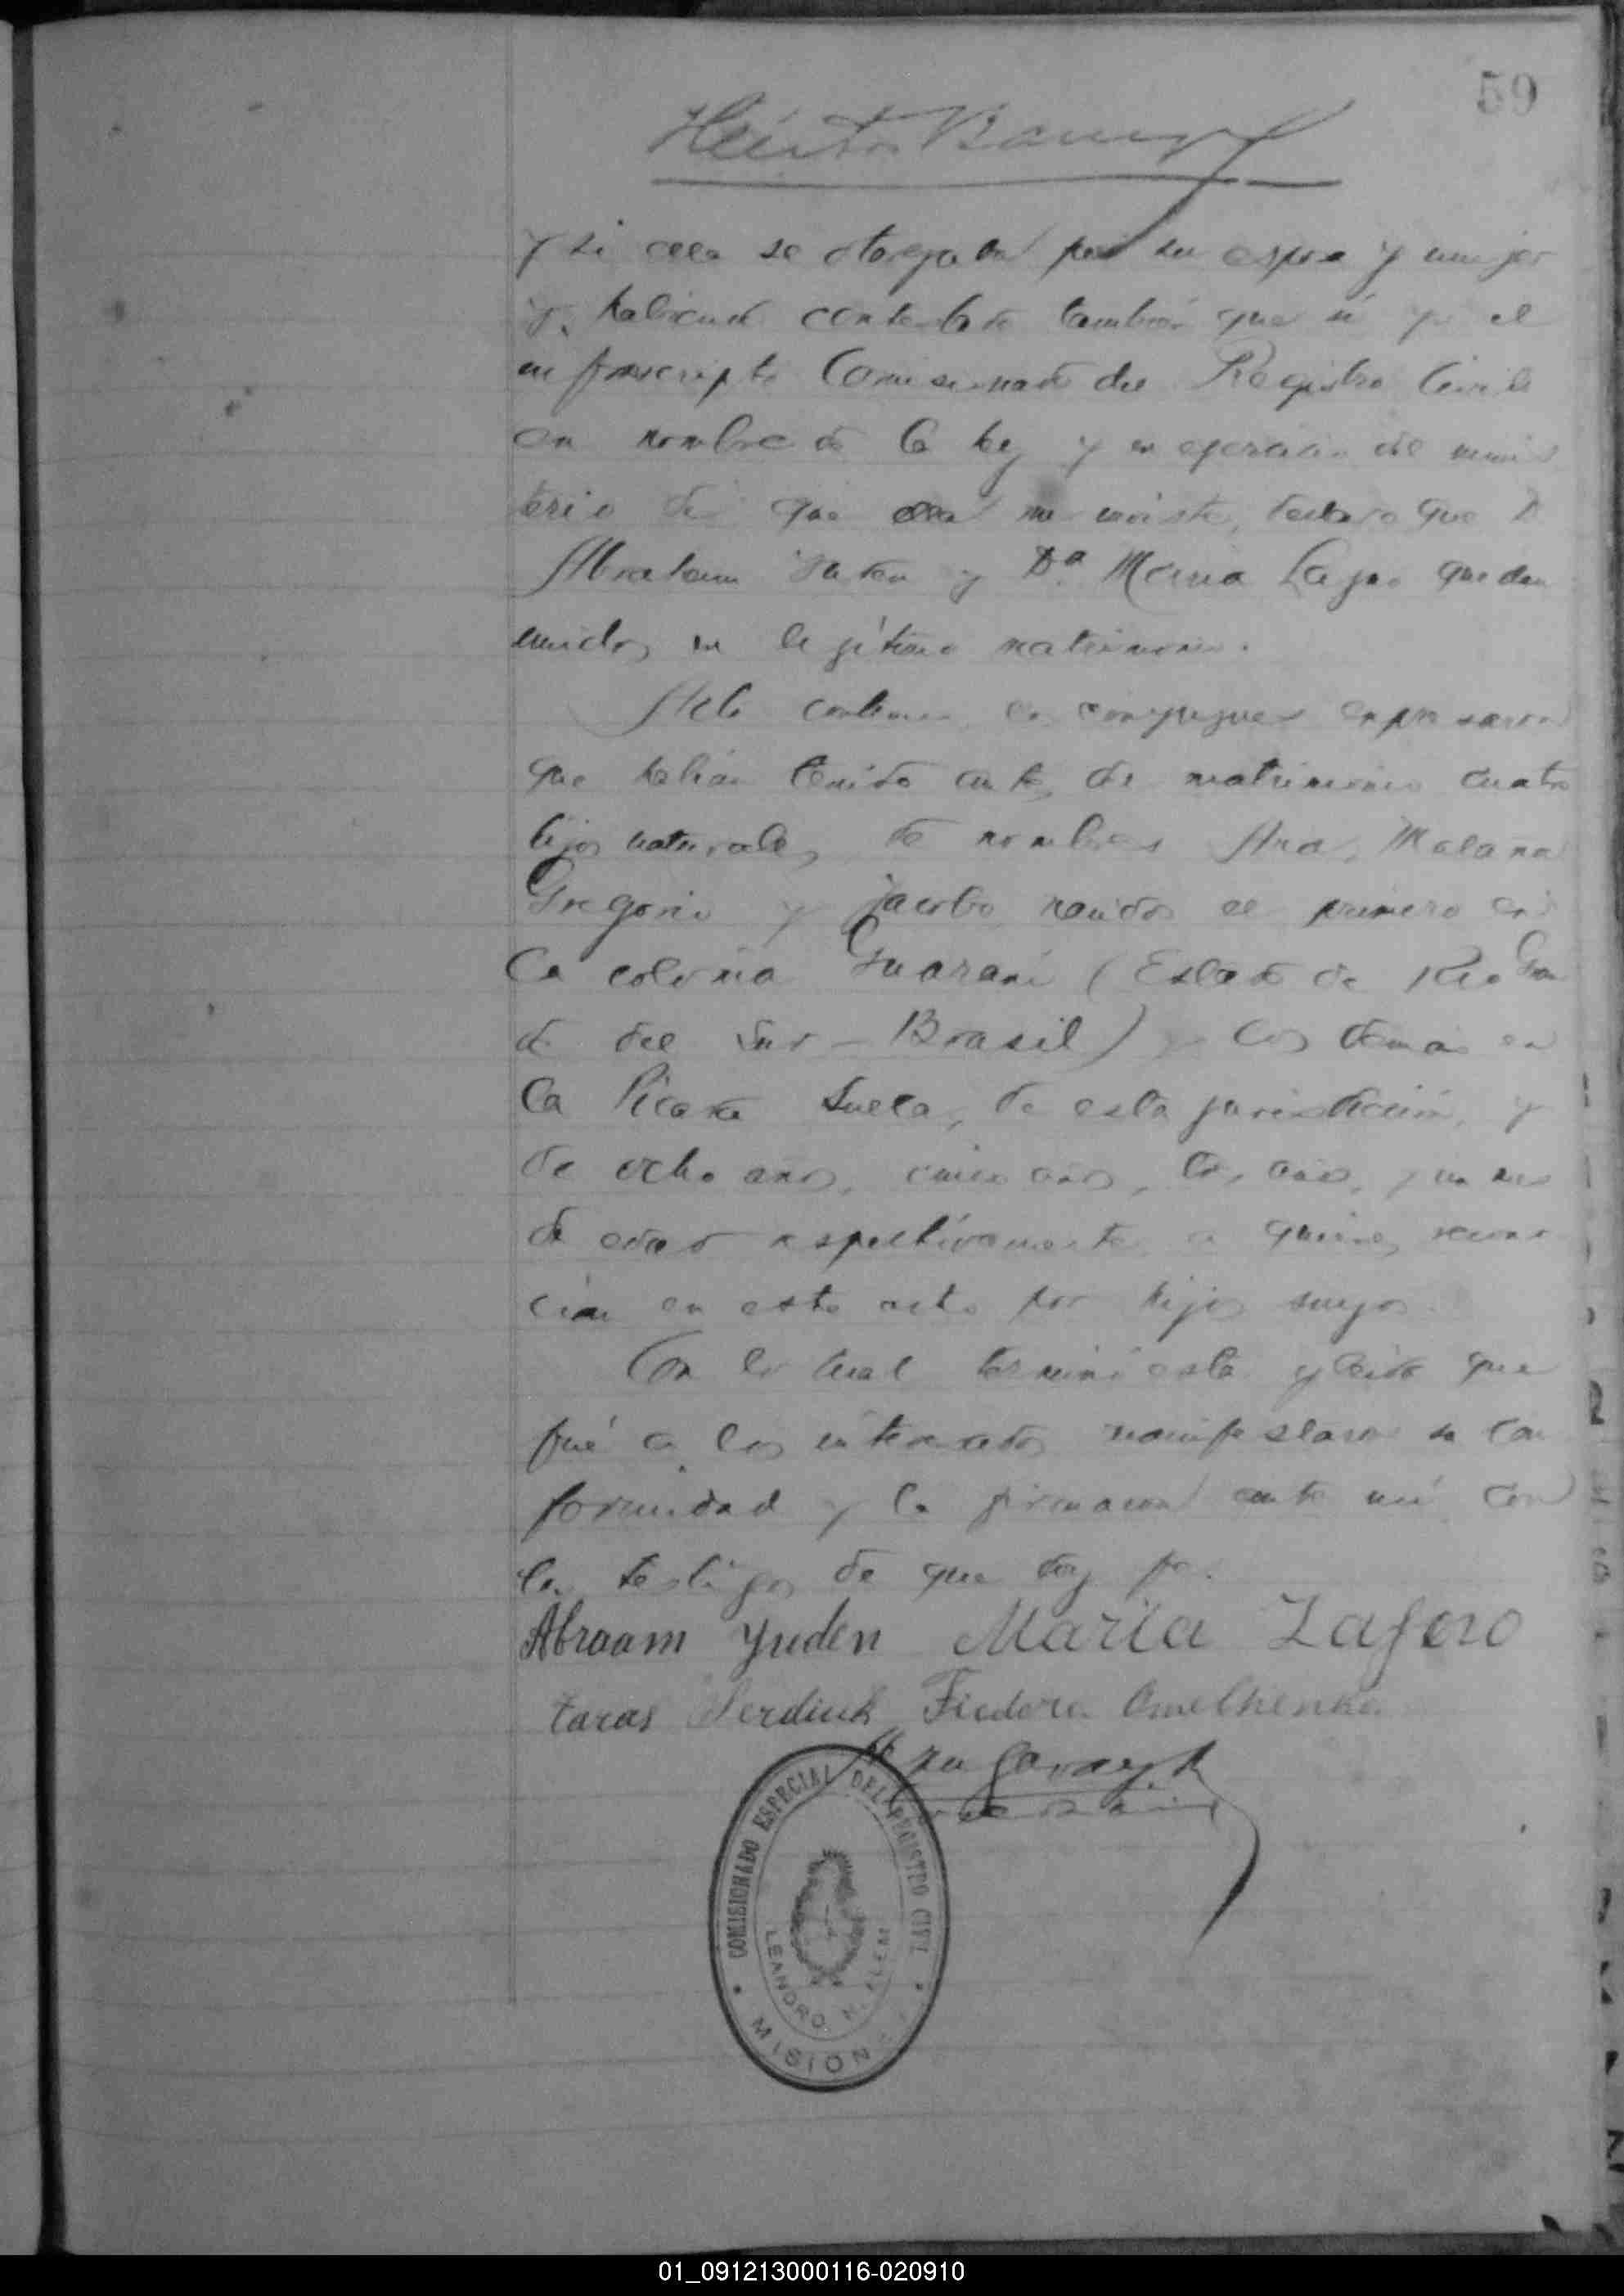 59
y si ella se otorgaba por su esposa y mujer
y, habiendo contestado también que sí yo el
infrascripto Comisionado del Registro Civil
en nombre de la ley y en ejercicio del minis
terio de que me, declaro que D
Abraham Yuden y Dª Maria Lagno quedan
unidos en legítimo matrimonio.
Acto continuo los conyugues expresaron
que habían tenido antes de matrimonio cuatro
hijos naturales, de nombres Ana,
Gregorio y Jacobo nacidos el primero en
la colonia Guaraní (Estado de Rio Gran
de del Sur - Brasil) y los demás en
la Picada Sueca, de esta jurisdicción, y
de ocho años, cinco años, años, y un mes
de edad respectivamente a quienes recono
cían en este acto por hijos suyos.
Con lo cual terminó esta y leida que
fué a los interesados manifestaron su con
formidad y la firmaron ante mí con
los testigos de que doy fe.
Abraam Yuden Maria
taras Serdiuk Fiedora Omelchenko
COMISIONADO ESPECIAL DEL REGISTRO CIVIL
LEANDRO N. ALEM
MISIONES
01_091213000116-020910